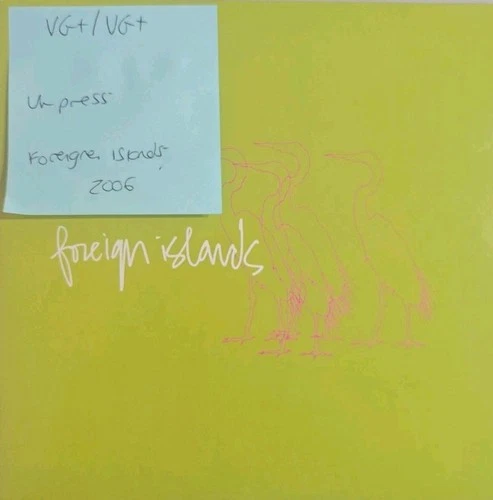 VG+/VG+
UK press
Foreigner Islands,
2006
foreign islands